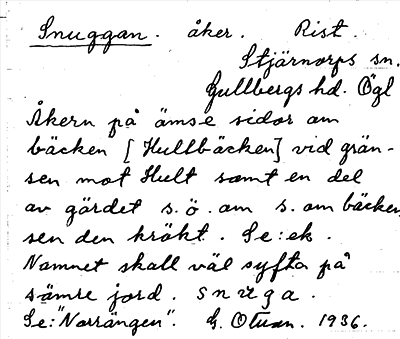 Snuggan. åker. Rist.
Stjärnorps sn.
Gullbergs hd. Ögl
Åkern på ömse sidor om
bäcken [Hultbäcken] vid grän-
sen mot Hult samt en del
av gärdet s.ö. om s. om bäcken,
sen den krökt. Se: ek.
Namnet skall väl syfta på
sämre jord. snuga.
Se: "Norrängen". G.  1936.